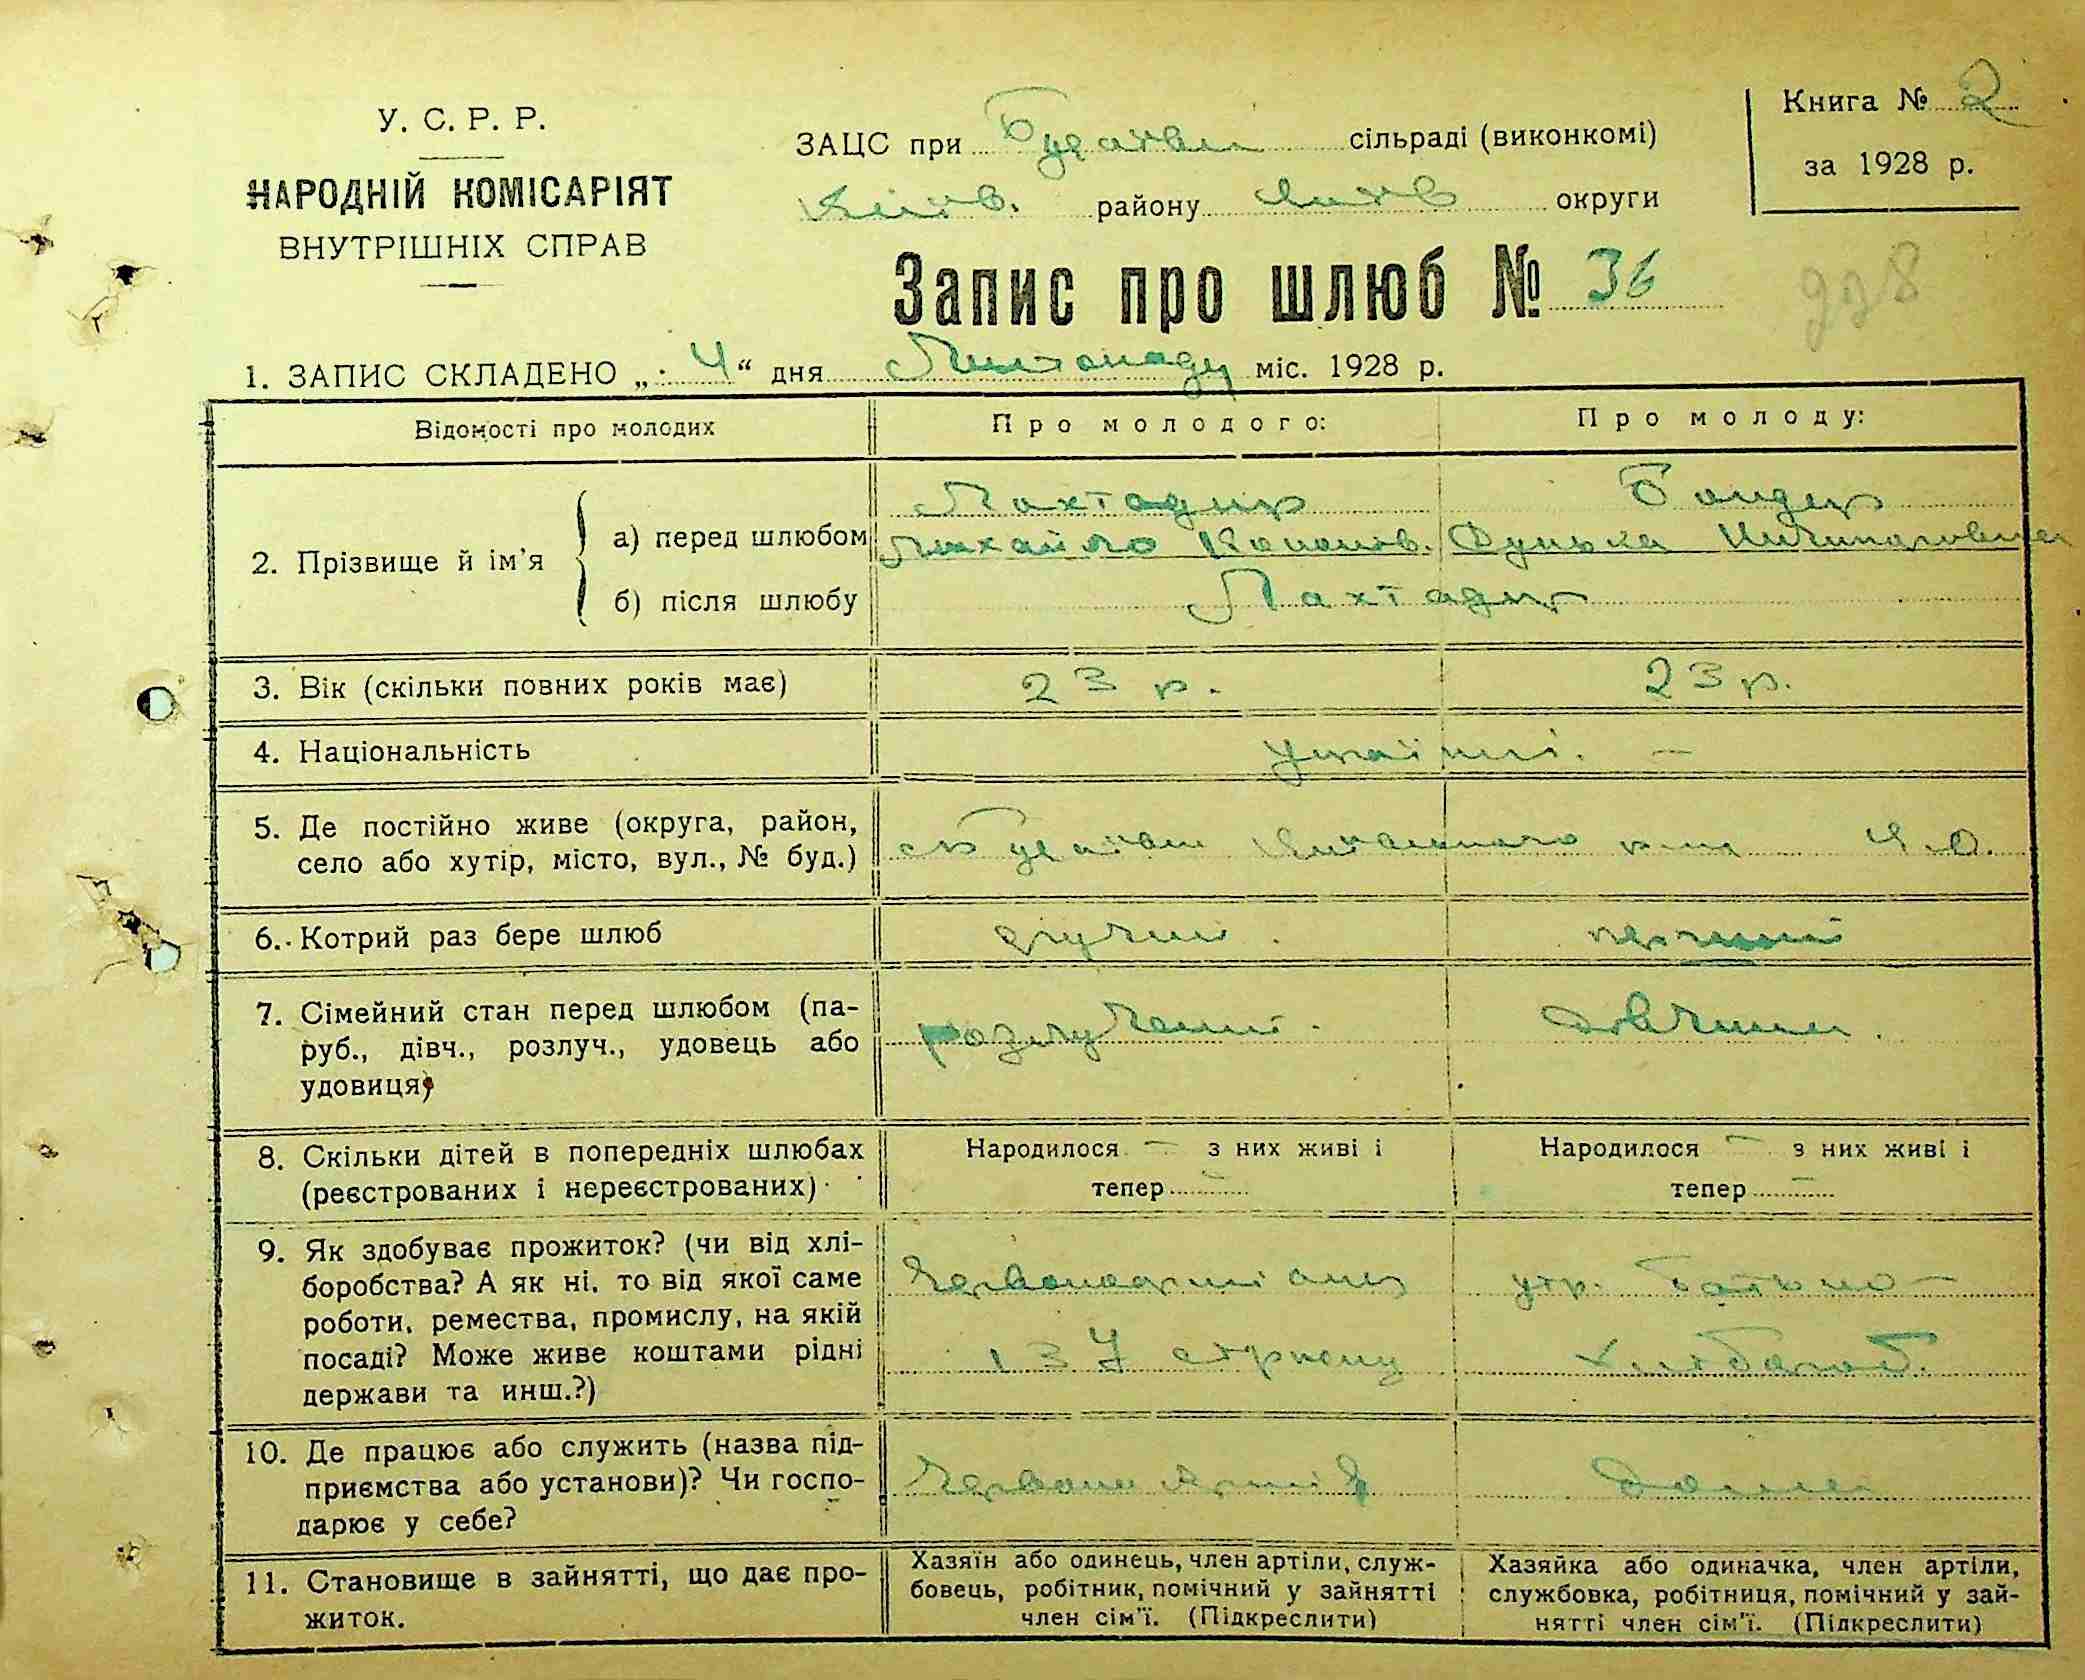 У. С. Р. Р.
НАРОДНІЙ КОМІСАРІЯТ
ВНУТРІШНІХ СПРАВ
ЗАЦС при сільраді (виконкомі)
Київ. району округи
Книга № 2
за 1928 р.
Запис про шлюб № 36
1. ЗАПИС СКЛАДЕНО „ 4 “ дня Листопаду міс. 1928 р.
Відомості про молодих
Про молодого:
Про молоду:
2. Прізвище й ім'я
а) перед шлюбом
б) після шлюбу
Лахтадир
Михайло Кононов.
Бондар
Дунька Ничипоровна
Лахтадир
3. Вік (скільки повних років має)
23 р.
23 р.
4. Національність
україні. —
5. Де постійно живе (округа, район,
село або хутір, місто, вул., № буд.)
6. Котрий раз бере шлюб
другий.
перший
7. Сімейний стан перед шлюбом (па-
руб., дівч., розлуч., удовець або
удовиця)
розлучений.
дівчина.
8. Скільки дітей в попередніх шлюбах
(реєстрованих і нереєстрованих)
Народилося — з них живі і
тепер —
Народилося — з них живі і
тепер —
9. Як здобуває прожиток? (чи від хлі-
боробства? А як ні. то від якої саме
роботи, ремества, промислу, на якій
посаді? Може живе коштами рідні
держави та инш.?)
Червоноармієць
137 стрполку
утр. батько —
хлібороб.
10. Де працює або служить (назва під-
приємства або установи)? Чи госпо-
дарює у себе?
Червона Армія
Дома
11. Становище в зайнятті, що дає про-
житок.
Хазяїн або одинець, член артіли, служ-
бовець, робітник, помічний у зайнятті
член сім'ї. (Підкреслити)
Хазяйка або одиначка, член артіли,
службовка, робітниця, помічний у зай-
нятті член сім'ї. (Підкреслити)